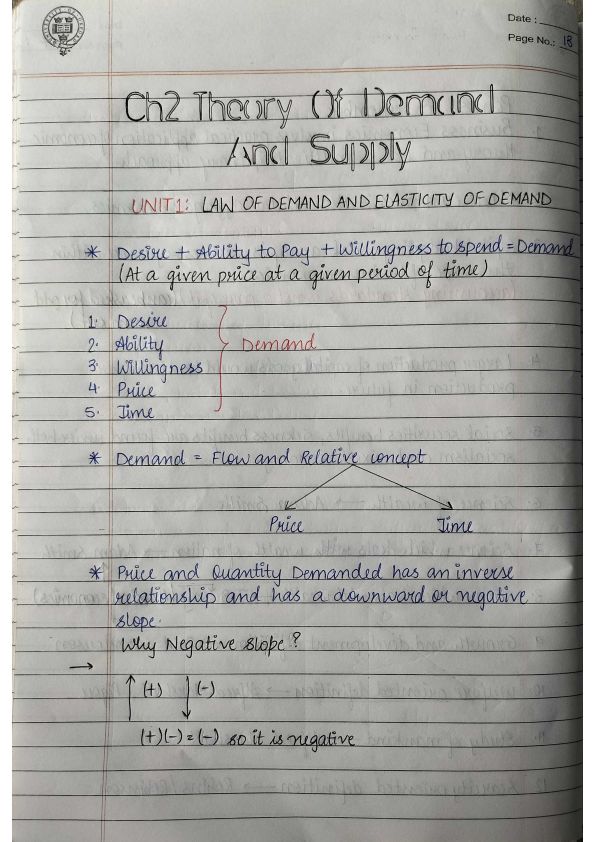 Date :
Page No.: 18
Ch2 Theory Of Demand
And Supply
UNIT 1: LAW OF DEMAND AND ELASTICITY OF DEMAND
* Desire + Ability to Pay + Willingness to spend = Demand
(At a given price at a given period of time)
1. Desire
2. Ability
3. Willingness
4. Price
5. Time
Demand
* Demand = Flow and Relative concept
Price Time
* Price and Quantity Demanded has an inverse
relationship and has a downward or negative
slope.
Why Negative slope?
→
↑ (+) ↓ (-)
(+)(-) = (-) so it is negative